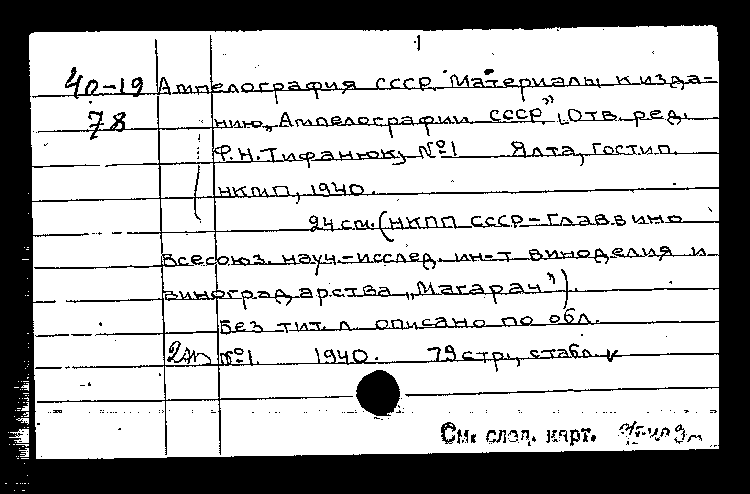 1
40-19 Ампелография СССР. Материалы к изда-
78 нию „Ампелографии СССР". Отв. ред.
Ф.Н. Тифанюк, №1 Ялта, Гостип.
НКМП, 1940.
24 см. (НКПП СССР - Главвино
Всесоюз. науч.-исслед. ин-т виноделия и
виноградарства „Магарач").
Без тит. л. описано по обл.
2эк №1. 1940. 79 стр., с табл.
См. след. карт.